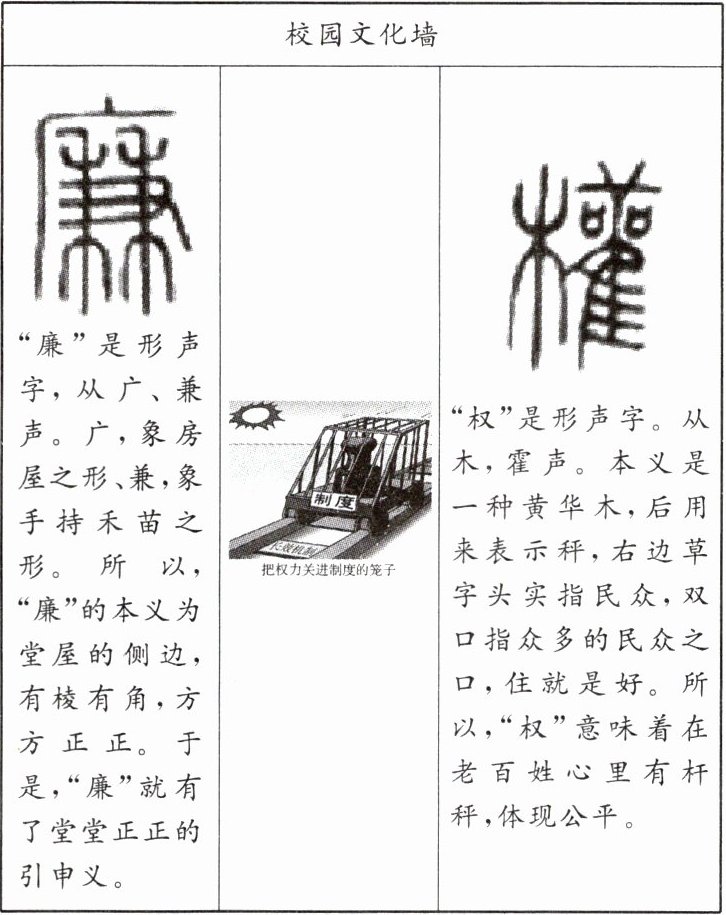 校园文化墙
廉
“廉”是形声
字,从广、兼
声。广,象房
屋之形、兼,象
手持禾苗之
形。所以,
“廉”的本义为
堂屋的侧边,
有棱有角,方
方正正。于
是,“廉”就有
了堂堂正正的
引申义。
制度
长效机制
把权力关进制度的笼子
權
“权”是形声字。从
木,霍声。本义是
一种黄华木,后用
来表示秤,右边草
字头实指民众,双
口指众多的民众之
口,住就是好。所
以,“权”意味着在
老百姓心里有杆
秤,体现公平。